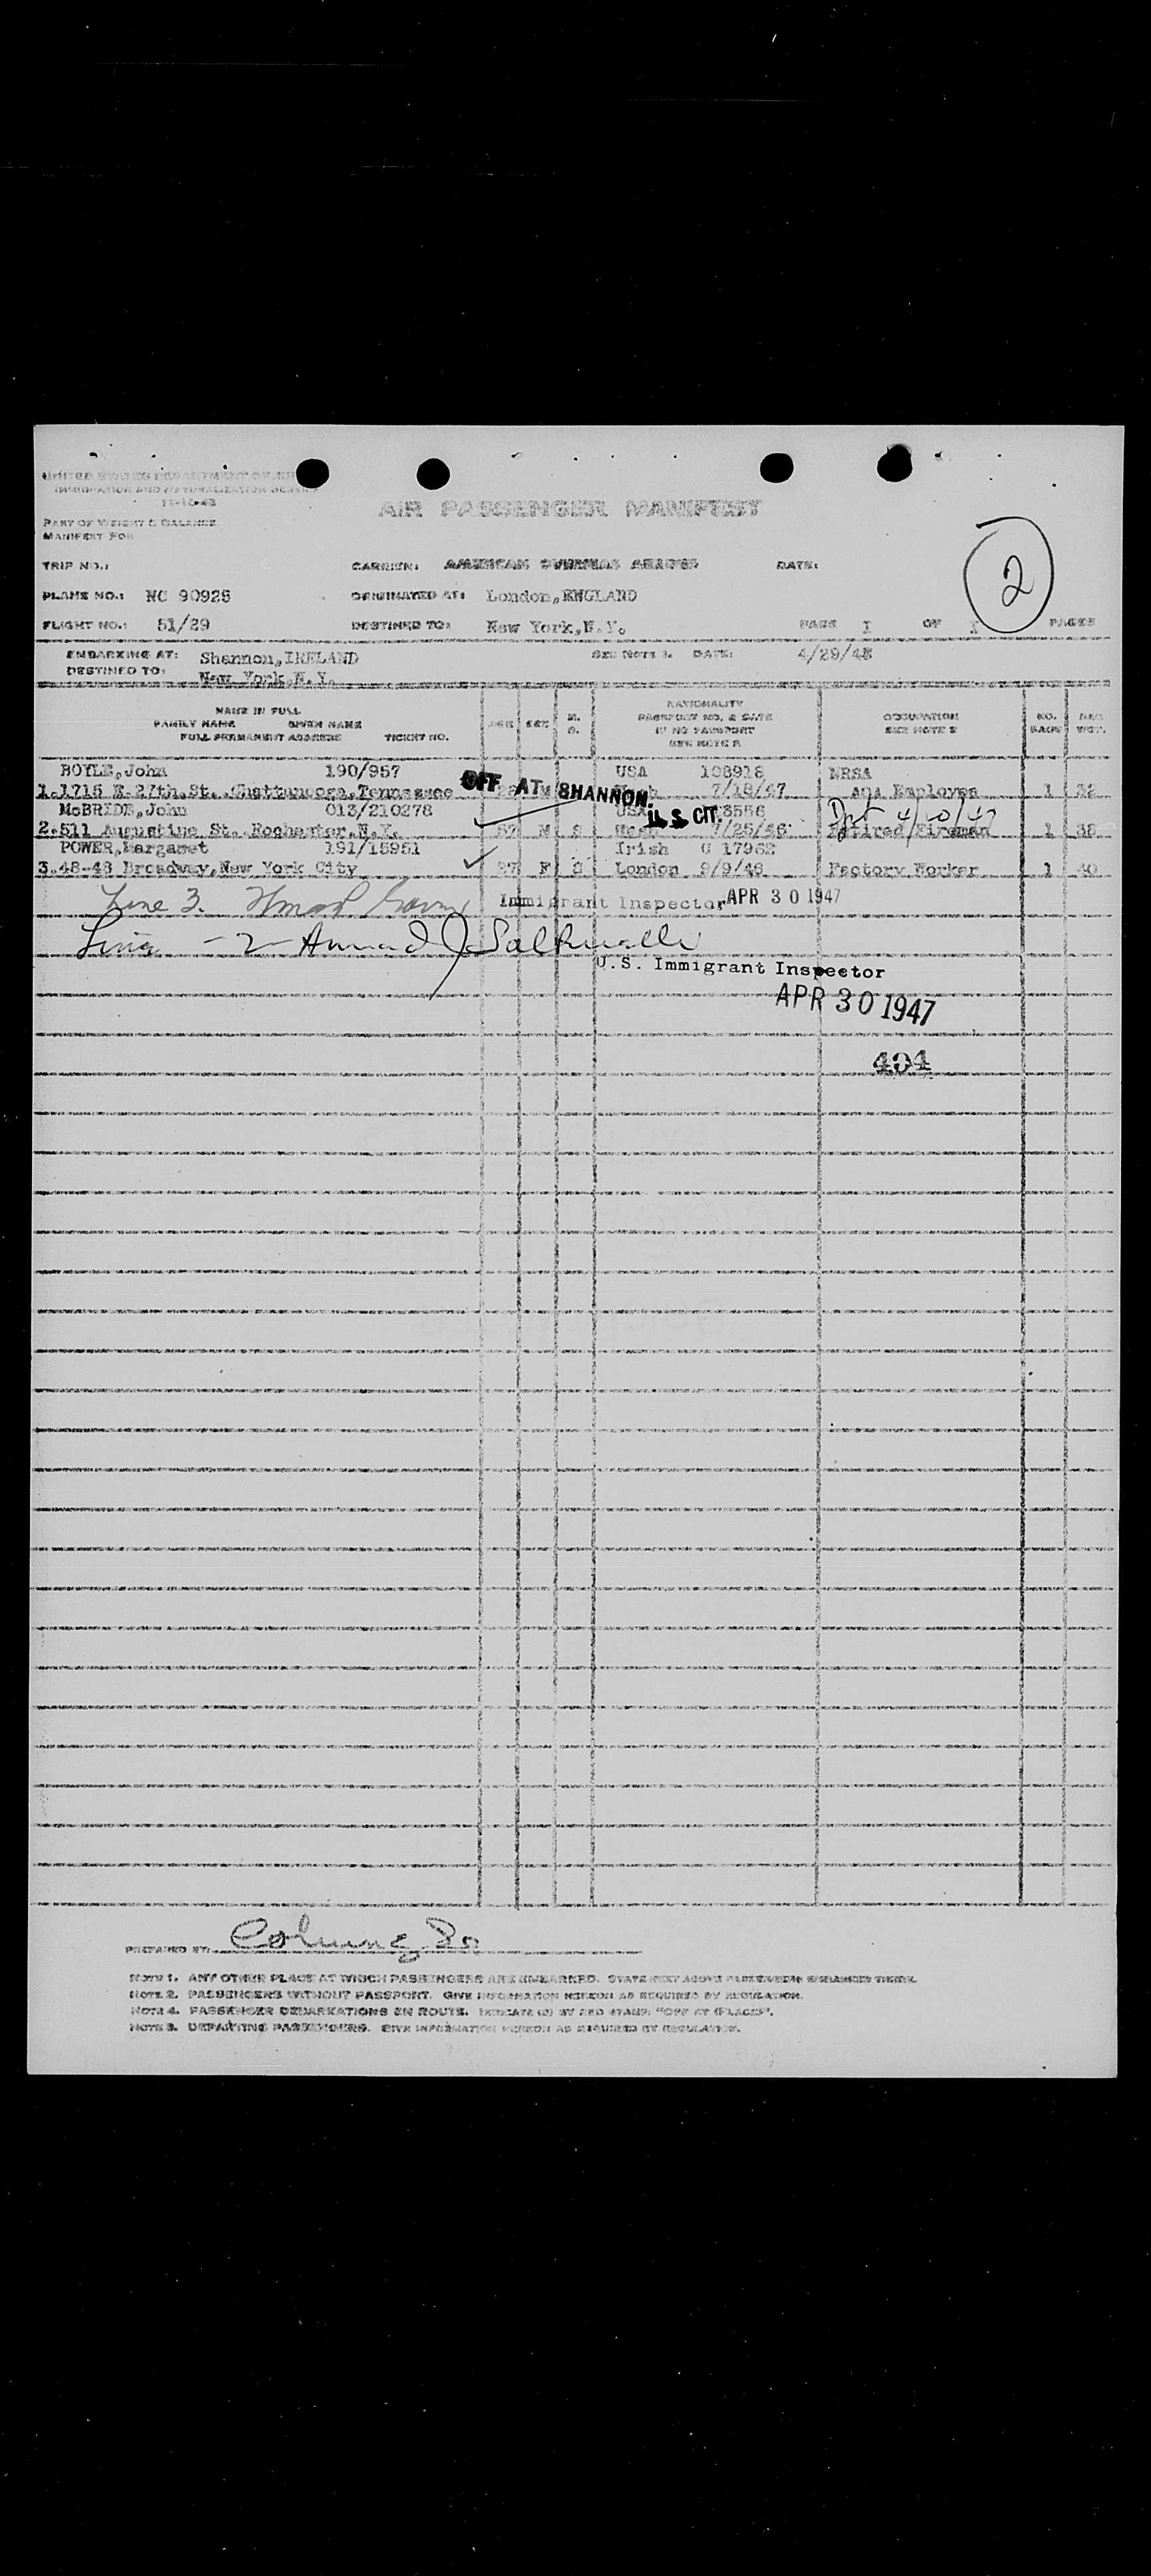 UNITED STATES DEPARTMENT OF
IMMIGRATION AND NATURALIZATION SERVICE
PART OF WEIGHT & BALANCE
MANIFEST FOR
AIR PASSENGER MANIFEST
2
TRIP NO.: CARRIER: AMERICAN OVERSEAS DATE:
PLANE NO.: NC 90925 ORIGINATED AT: London,ENGLAND
FLIGHT NO.: 51/29 DESTINED TO: New York,N.Y. PAGE 1 OF 1 PAGES
EMBARKING AT: Shannon,IRELAND SEE NOTE 1. DATE: 4/29/48
DESTINED TO: New York,N.Y.
NAME IN FULL
FAMILY NAME GIVEN NAME
FULL PERMANENT ADDRESS TICKET NO.
AGE SEX M. S.
NATIONALITY
PASSPORT NO. & DATE
IF NO PASSPORT
SEE NOTE 2
OCCUPATION
SEE NOTE 3
NO. BAGS
WGT.
BOYLE,John 190/957 USA 108918
1.1715 E.27th.St..Chattanooga,Tennessee M 7/18/47 Employee 1 32
OFF AT SHANNON.
McBRIDE,John 013/210278 USA
U.S. CIT.
2.511 Augustine St. Rochester,N.Y. 57 M S Retired Fireman 1 38
POWER,Margaret 191/15951 Irish 17962
3.48-43 Broadway,New York City 27 F S London 9/9/46 Factory Worker 1 40
Line 3. Immigrant Inspector APR 30 1947
Line - 2 - J.
U.S. Immigrant Inspector
APR 30 1947
404
PREPARED BY:
NOTE 1. ANY OTHER PLACE AT WHICH PASSENGERS ARE EMBARKED. STATE NEXT ABOVE PASSENGERS
NOTE 2. PASSENGERS WITHOUT PASSPORT. GIVE INFORMATION HEREON AS REQUIRED BY REGULATION.
NOTE 4. PASSENGER DEBARKATIONS EN ROUTE. INDICATE BY RED STAMP "OFF AT (PLACE)".
NOTE 3. DEPARTING PASSENGERS. GIVE INFORMATION HEREON AS REQUIRED BY REGULATION.